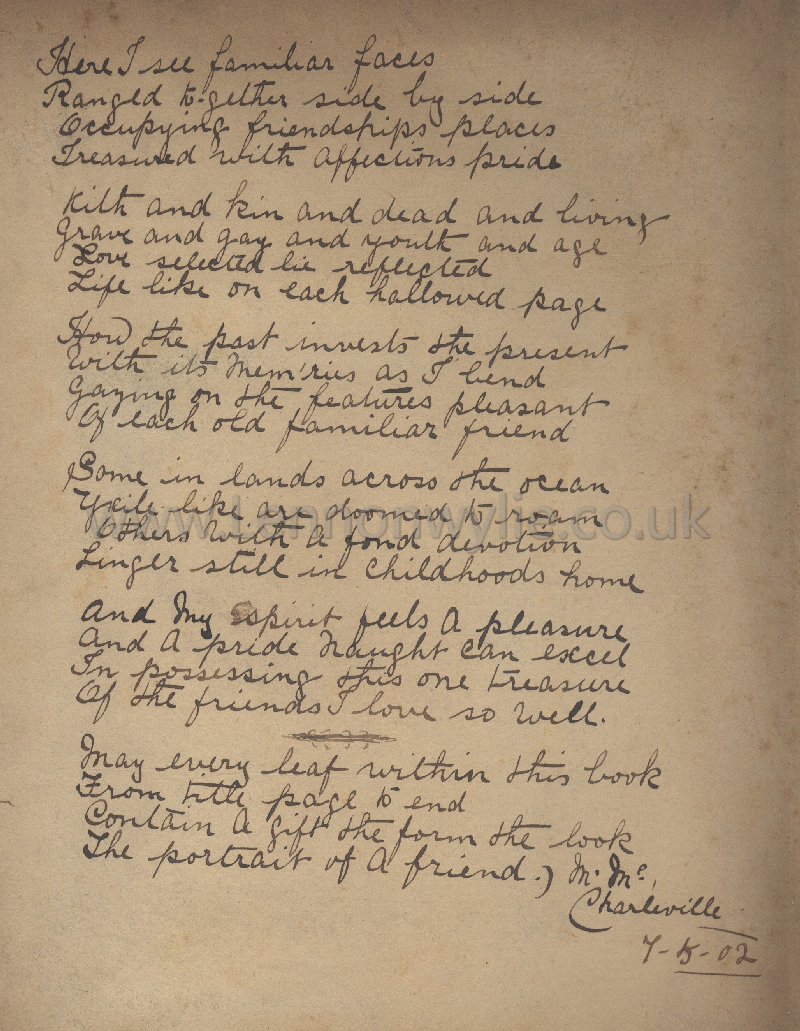 Here I see familiar faces
Ranged to-gether side by side
Occupying friendships places
Treasured with affections pride
Kith and kin and dead and living
Grave and gay and youth and age
Love selected lie reflected
Life like on each hallowed page
How the past invests the present
With its Mem'ries as I bend
Gazing on the features pleasant
Of each old familiar friend
Some in lands across the ocean
Exile like are doomed to roam
Others with a fond devotion
Linger still in childhoods home
And My spirit feels A pleasure
And A pride Naught can excel
In possessing this one treasure
Of the friends I love so well.
May every leaf within this book
From title page to end
Contain A gift the form the look
The portrait of A friend.) M. Mc.
Charleville
7-5-02